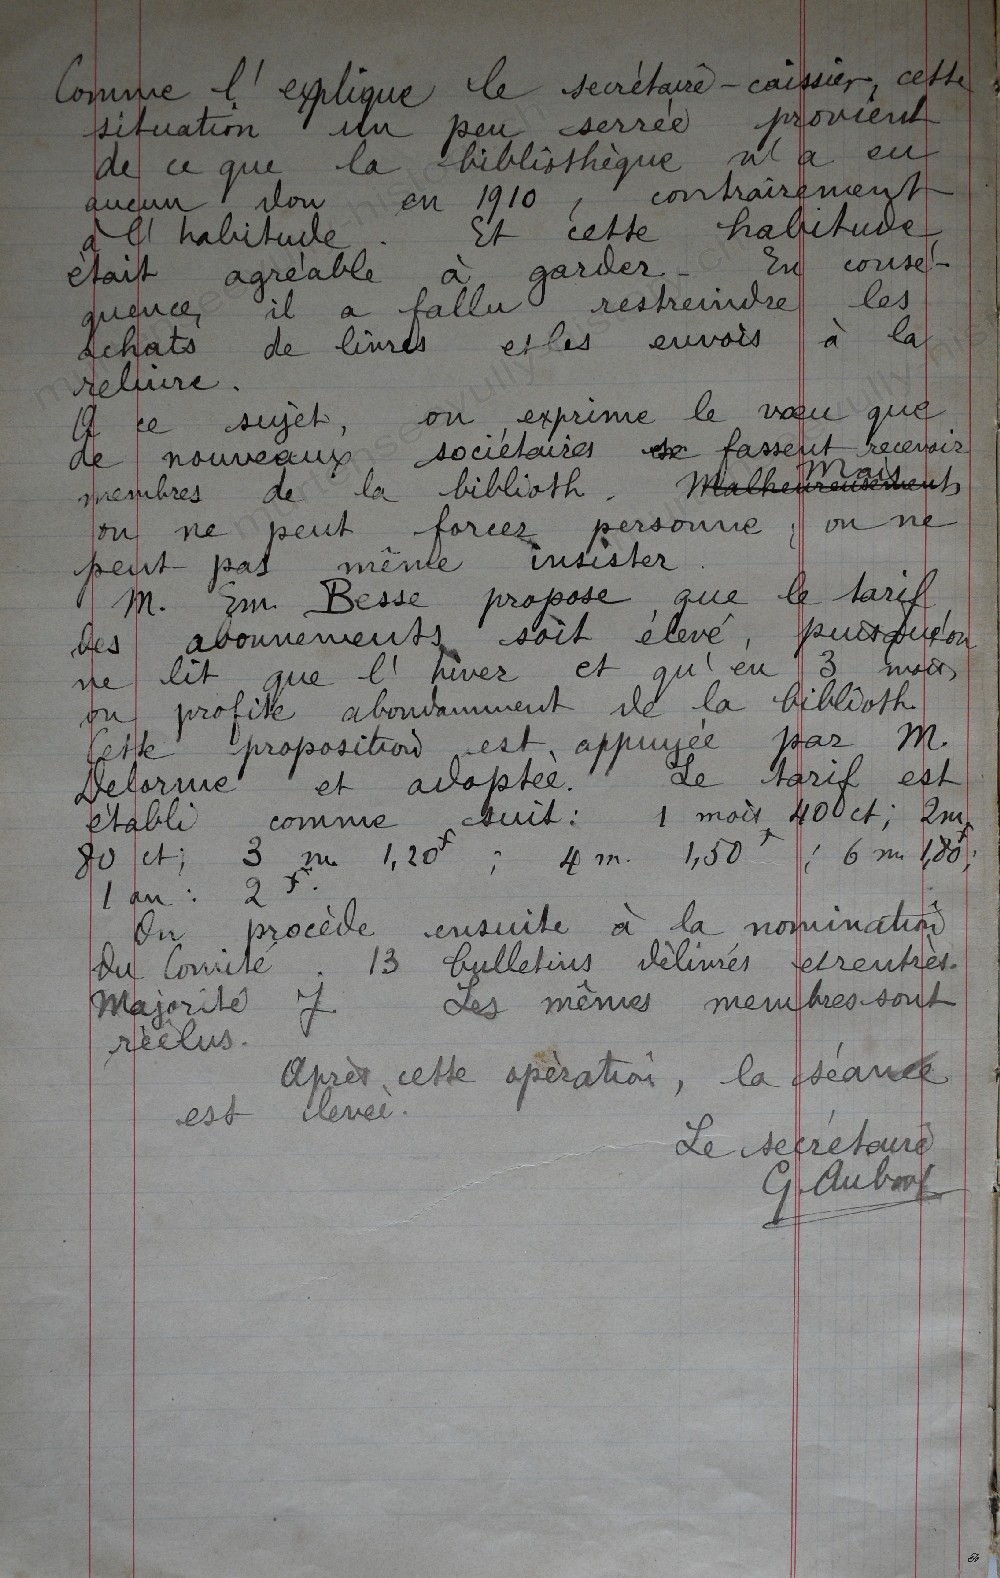 Comme l'explique le secrétaire-caissier, cette
situation un peu serrée provient
de ce que la bibliothèque n'a eu
aucun don en 1910, contrairement
à l'habitude. Et cette habitude
était agréable à garder. En consé-
quence, il a fallu restreindre les
achats de livres et les envois à la
reliure.
A ce sujet, on exprime le vœu que
de nouveaux sociétaires se fassent recevoir
membres de la biblioth. Malheureusement Mais
on ne peut forcer personne; on ne
peut pas même insister.
M. Em. Besse propose que le tarif
des abonnements soit élevé, puisqu'on
ne lit que l'hiver et qu'en 3 mois
on profite abondamment de la biblioth.
Cette proposition est appuyée par M.
Delorme et adoptée. Le tarif est
établi comme suit: 1 mois 40 ct; 2 m.
80 ct; 3 m. 1,20 f; 4 m. 1,50 f; 6 m. 1,80 f;
1 an: 2 f.
On procède ensuite à la nomination
du Comité. 13 bulletins délivrés et rentrés.
Majorité 7. Les mêmes membres sont
réélus.
Après cette opération, la séance
est levée.
Le secrétaire
G.